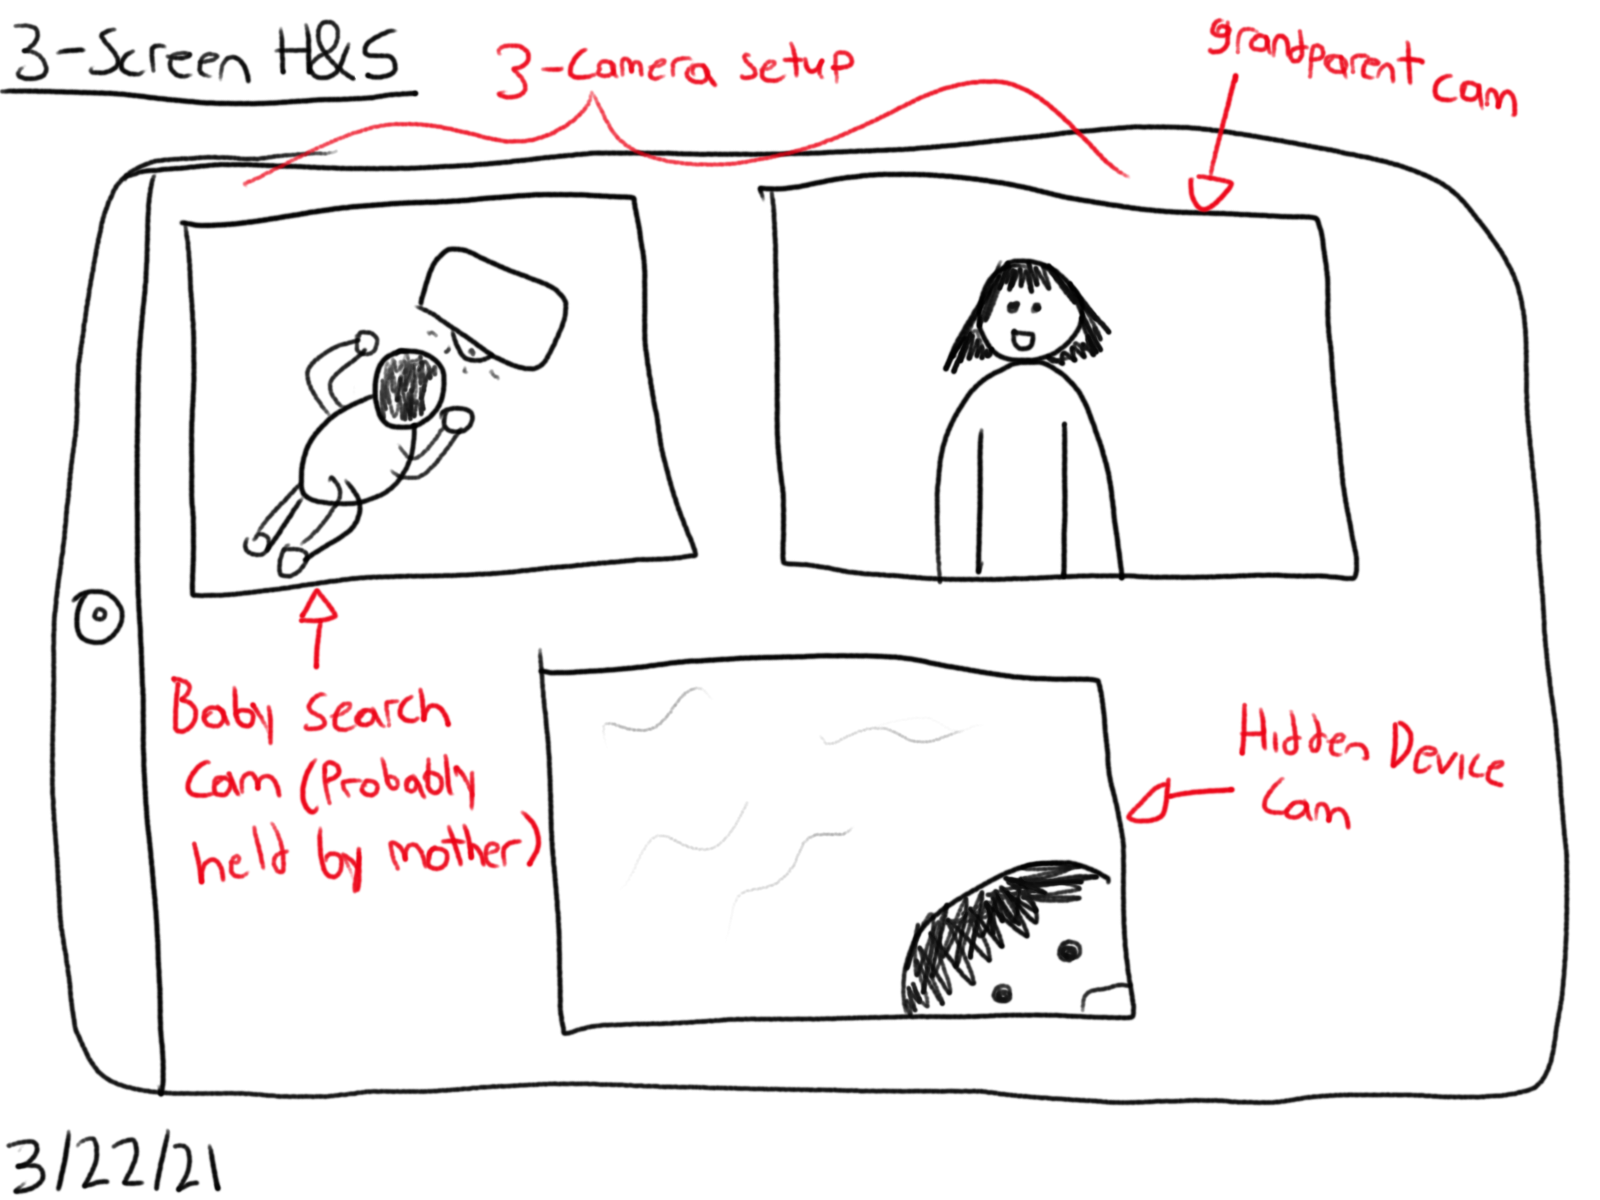 3-Screen H&S
3-Camera setup
grandparent cam
Baby search
Cam (Probably
held by mother)
Hidden Device
Cam
3/22/21